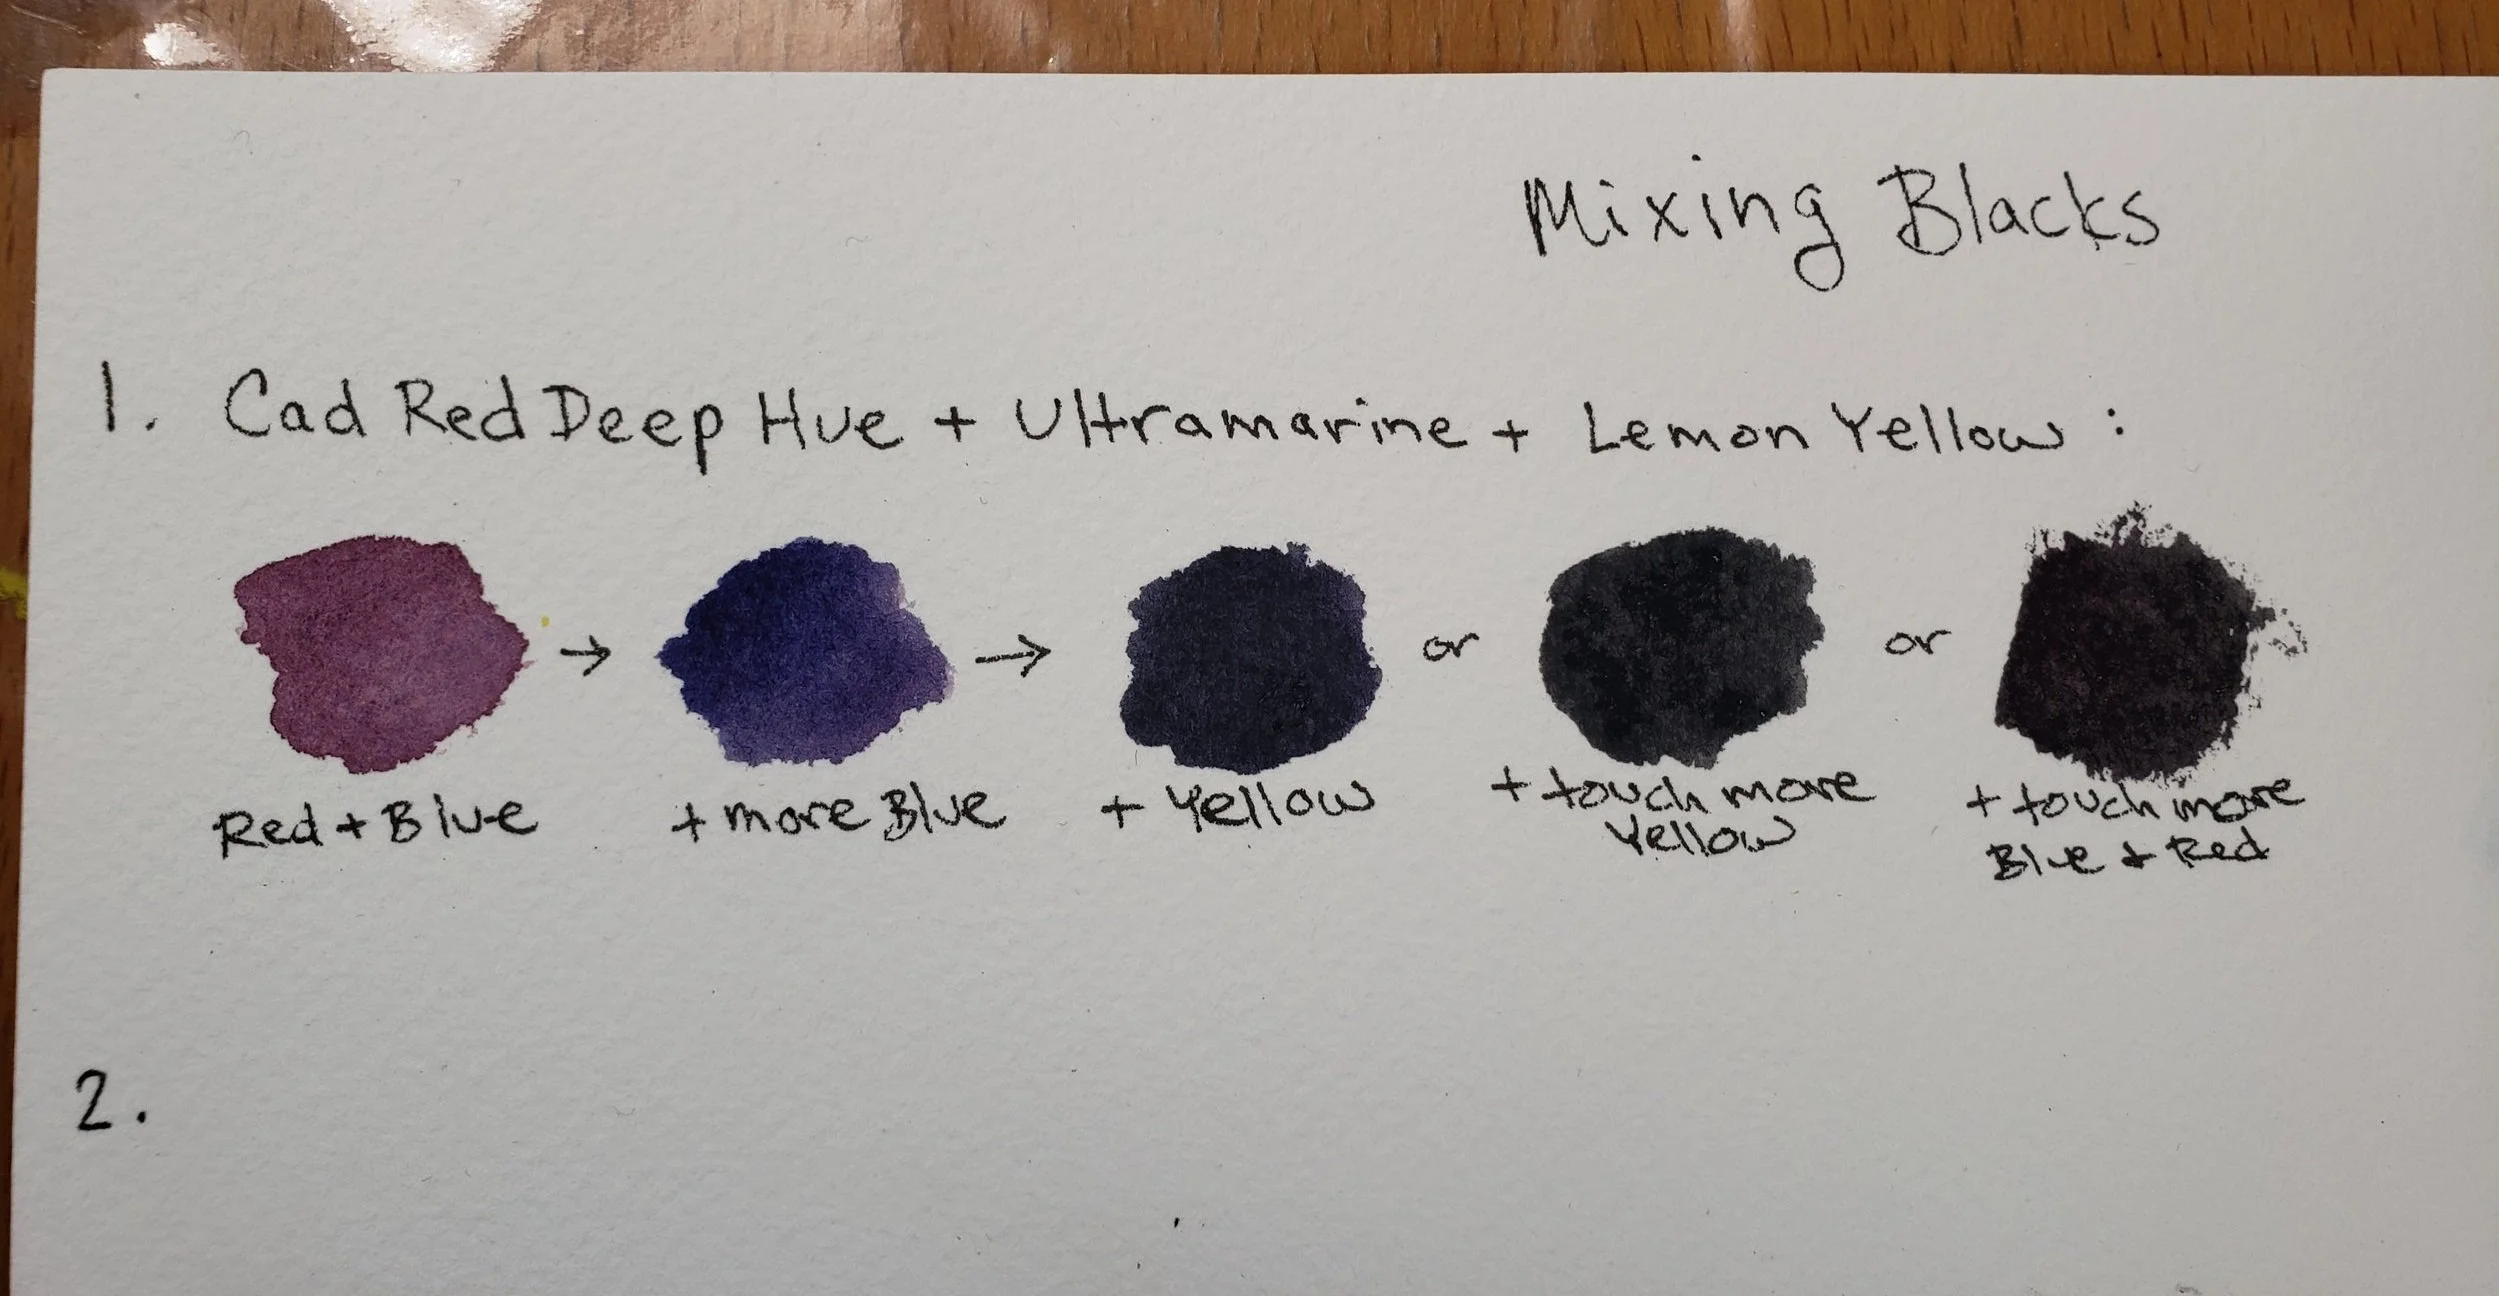 Mixing Blacks
1. Cad Red Deep Hue + Ultramarine + Lemon Yellow :
Red + Blue → + more Blue → + Yellow or + touch more Yellow or + touch more Blue + Red
2.